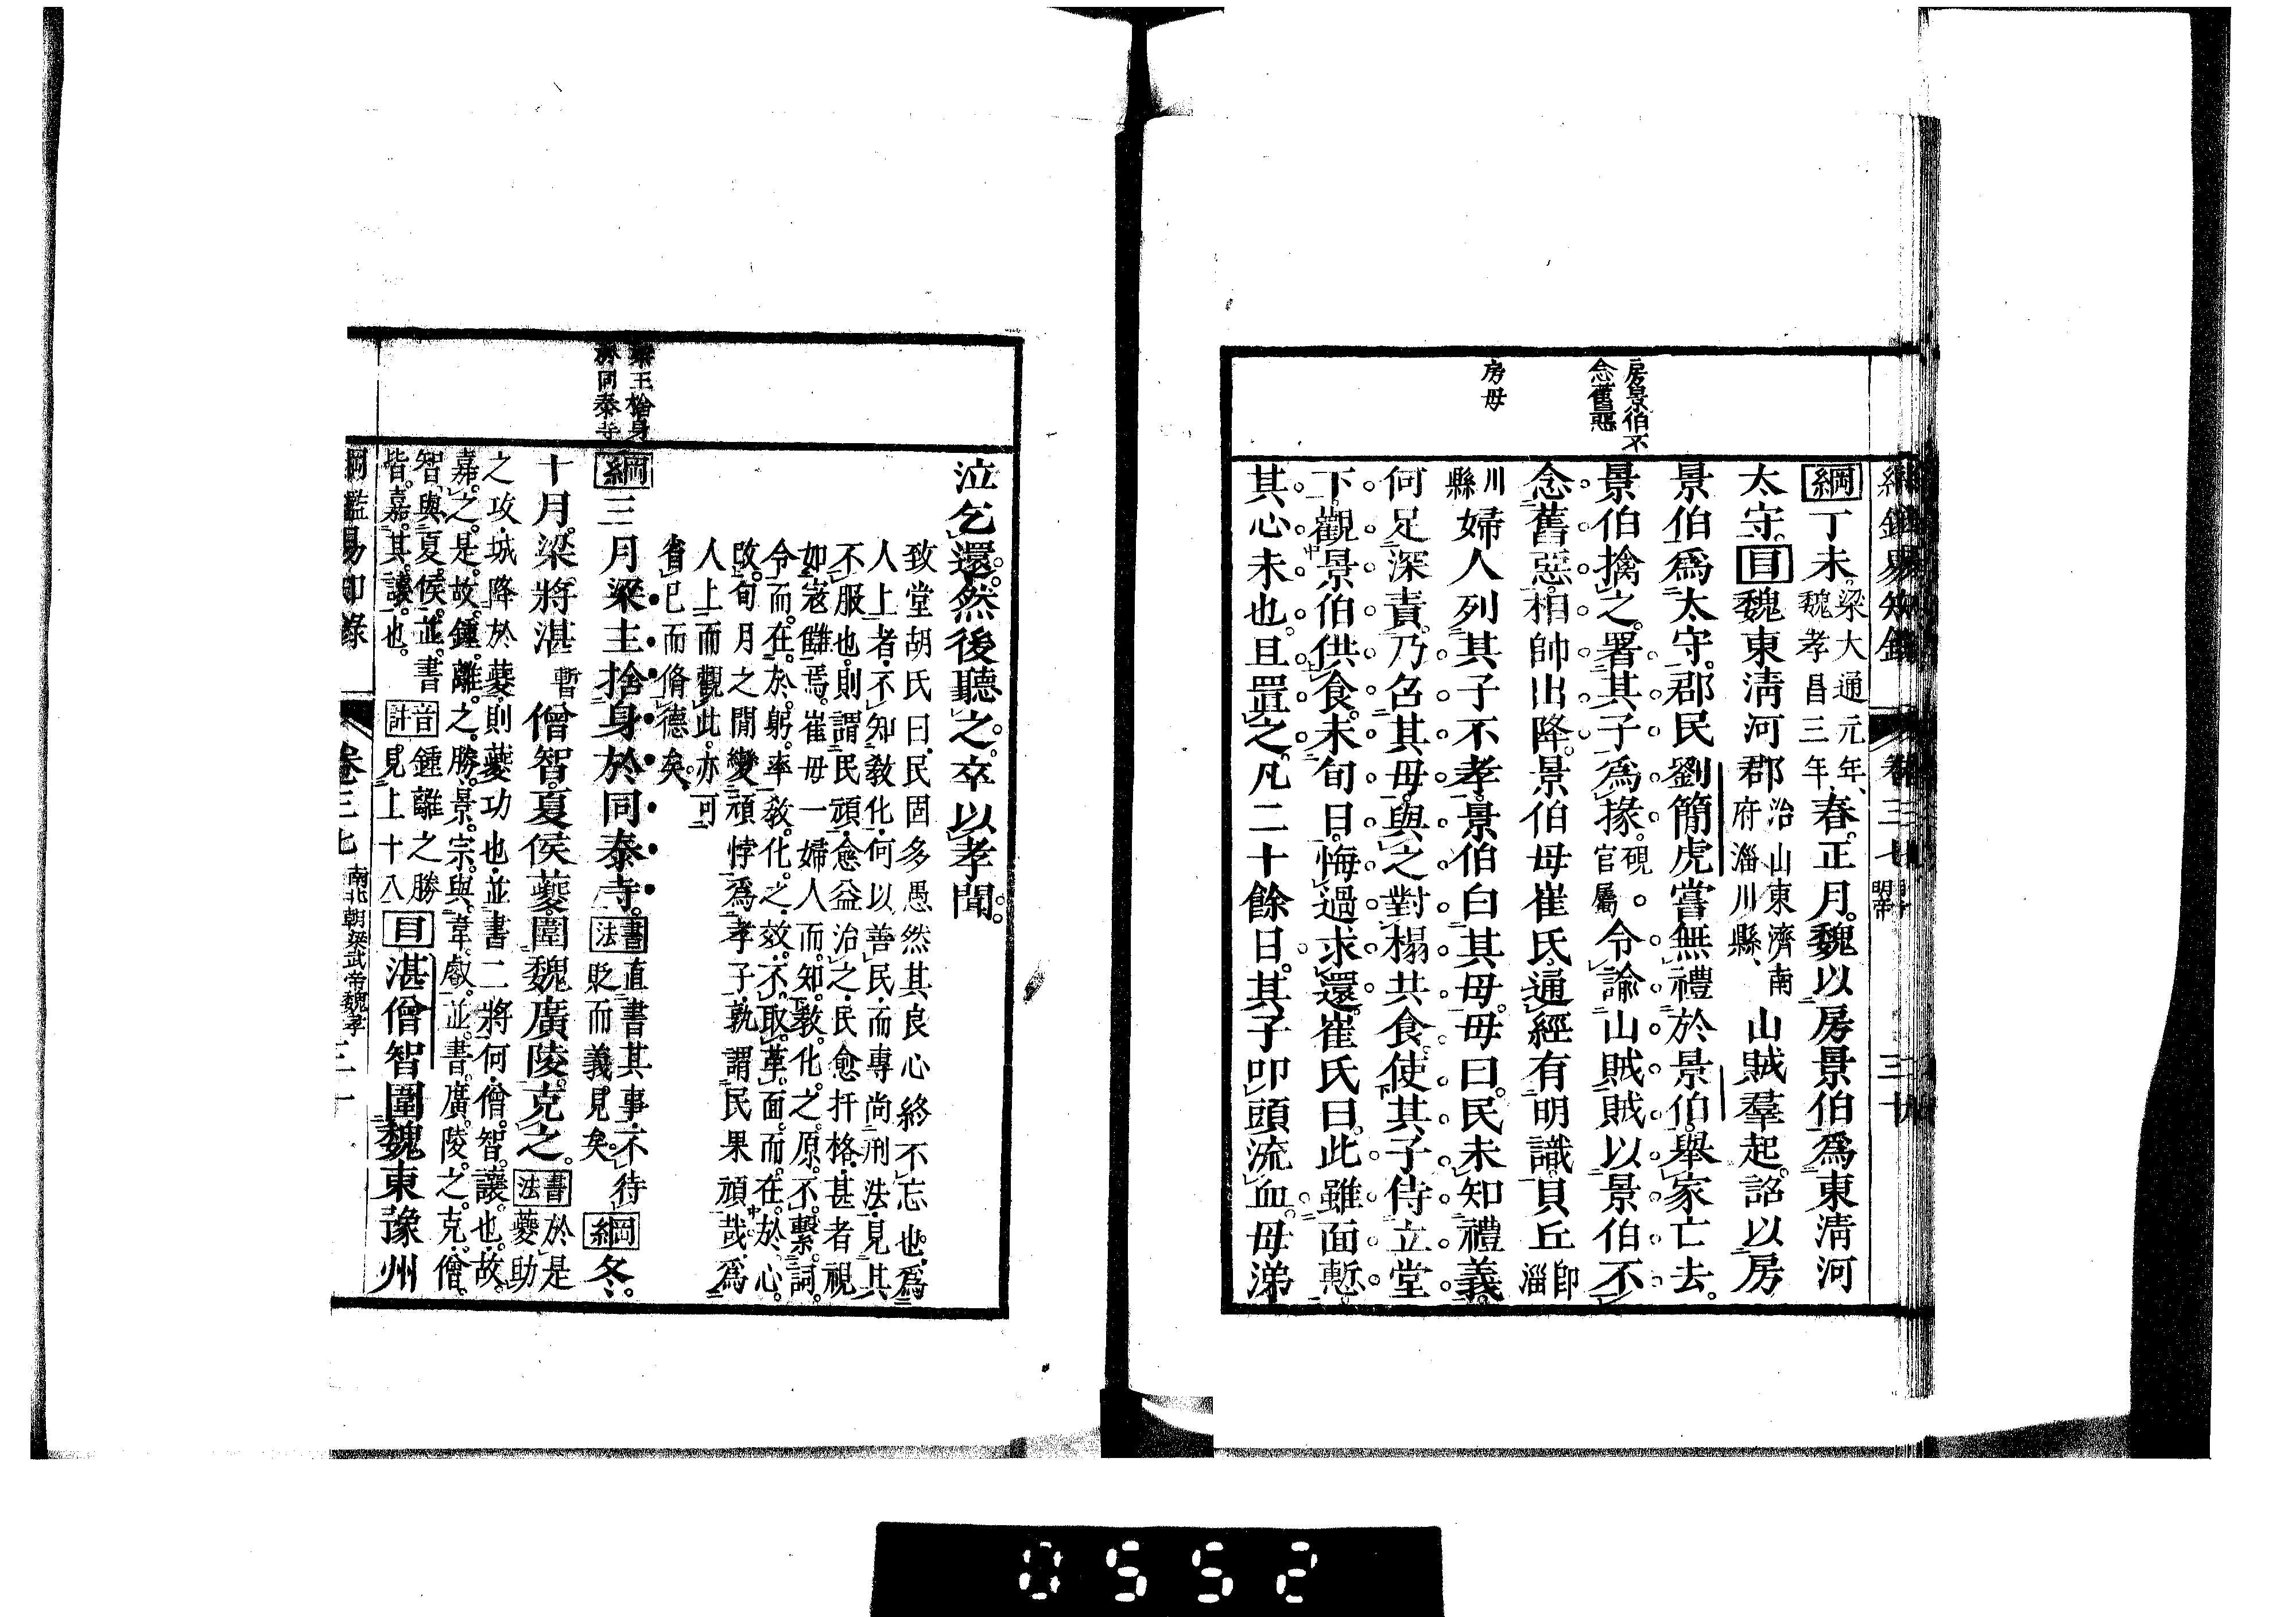 綱鑑易知錄 卷三七 明帝 三十
房景伯不
念舊惡
房母
綱丁未梁大通元年、魏孝昌三年、春正月。魏以房景伯爲東淸河
太守。目魏東淸河郡治山東濟南府淄川縣、山賊羣起。詔以房
景伯爲太守。郡民劉簡虎嘗無禮於景伯。舉家亡去。
景伯擒之。署其子爲掾硯。官屬。令諭山賊。賊以景伯不
念舊惡。相帥出降。景伯母崔氏通經有明識。貝丘卽淄
川縣婦人列其子不孝。景伯白其母。母曰。民未知禮義。
何足深責。乃召其母。與之對榻共食。使其子侍立堂
下。觀景伯供食。未旬日。悔過求還。崔氏曰。此雖面慙。
其心未也。且置之。凡二十餘日。其子叩頭流血。母涕
泣乞還。然後聽之。卒以孝聞。
致堂胡氏曰、民固多愚、然其良心終不忘也。爲
人上者、不知敎化、何以善民、而專尚刑法、見其
不服也、則謂民頑、愈益治之、民愈扞格、甚者視
如寇讎焉。崔母一婦人而知敎化之原、不繫詞
令而在於躬率、敎化之效、不取革面而在於心
改。旬月之閒、變頑悖爲孝子、孰謂民果頑哉。爲
人上而觀此、亦可
省己而脩德矣。
梁主捨身
於同泰寺
綱三月梁主捨身於同泰寺。書法直書其事、不待貶而義見矣。綱冬、
十月。梁將湛暫僧智。夏侯夔圍魏廣陵。克之。書法於是夔助
之攻城降於夔、則夔功也、並書二將何、僧智讓也、故
嘉之。是故鍾離之勝、景宗與韋叡並書。廣陵之克、僧
智與夏侯並書、皆嘉其讓也。音計鍾離之勝見上十八目湛僧智圍魏東豫州
綱鑑易知錄 卷三七 南北朝梁武帝魏孝 三十一
0552